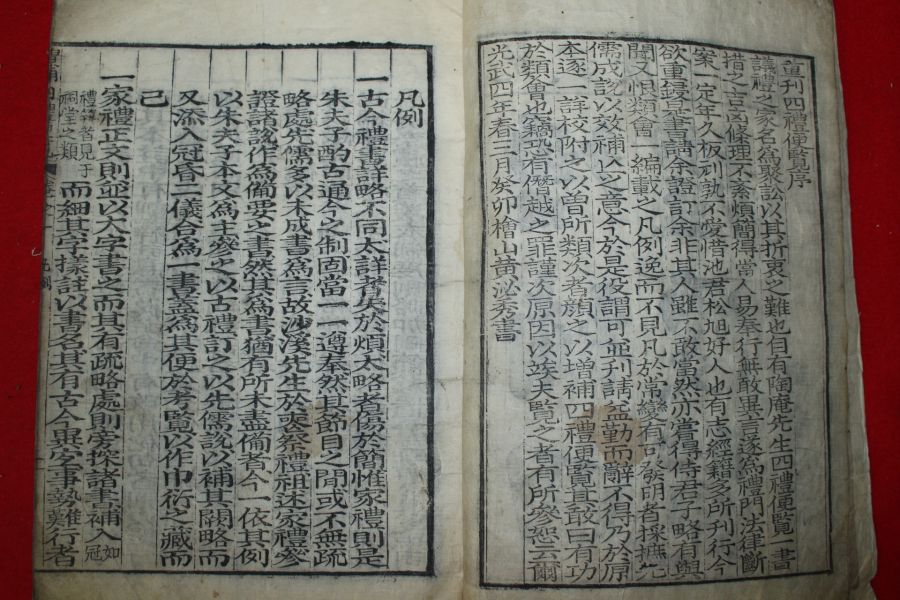 重刊四禮便覽序
議禮之家名爲聚訟以其折衷之難也自有陶庵先生四禮便覽一書
措之言凶條理不紊煩簡得當人易奉行無敢異言遂爲禮門法律斷
案一定年久板刓孰不愛惜池君松旭好人也有志經籍多所刊行今
欲重繡是書請余證訂余非其人雖不敢當然亦嘗得侍君子略有與
聞又恨類會一編載之凡例逸而不見凡於常變有可發明者採摭先
儒成說以效補亾之意今於是役謂可並刊請益勤而辭不得乃於原
本逐一詳校附之以曾所類次者顔之以增補四禮便覽豈敢曰有功
於類會也竊恐有僭越之罪謹次原因以竢夫覽之者有所參恕云爾
光武四年春三月癸卯檜山黃泌秀書
凡例
一古今禮書詳略不同太詳者失於煩太略者傷於簡惟家禮則是
朱夫子酌古通今之制固當一一遵奉然其節目之間或不無疏
略處先儒多以未成書爲言故沙溪先生於喪祭禮祖述家禮參
證諸說作爲備要之書然其爲書猶有所未盡備者今一依其例
以朱夫子本文爲主參之以古禮訂之以先儒說以補其闕略而
又添入冠昏二儀合爲一書蓋爲其便於考覽以作巾衍之藏而
已
一家禮正文則並以大字書之而其有疏略處則旁探諸書補入如冠
禮筭者見于祠堂之類而細其字樣註以書名其有古今異宜事勢難行者